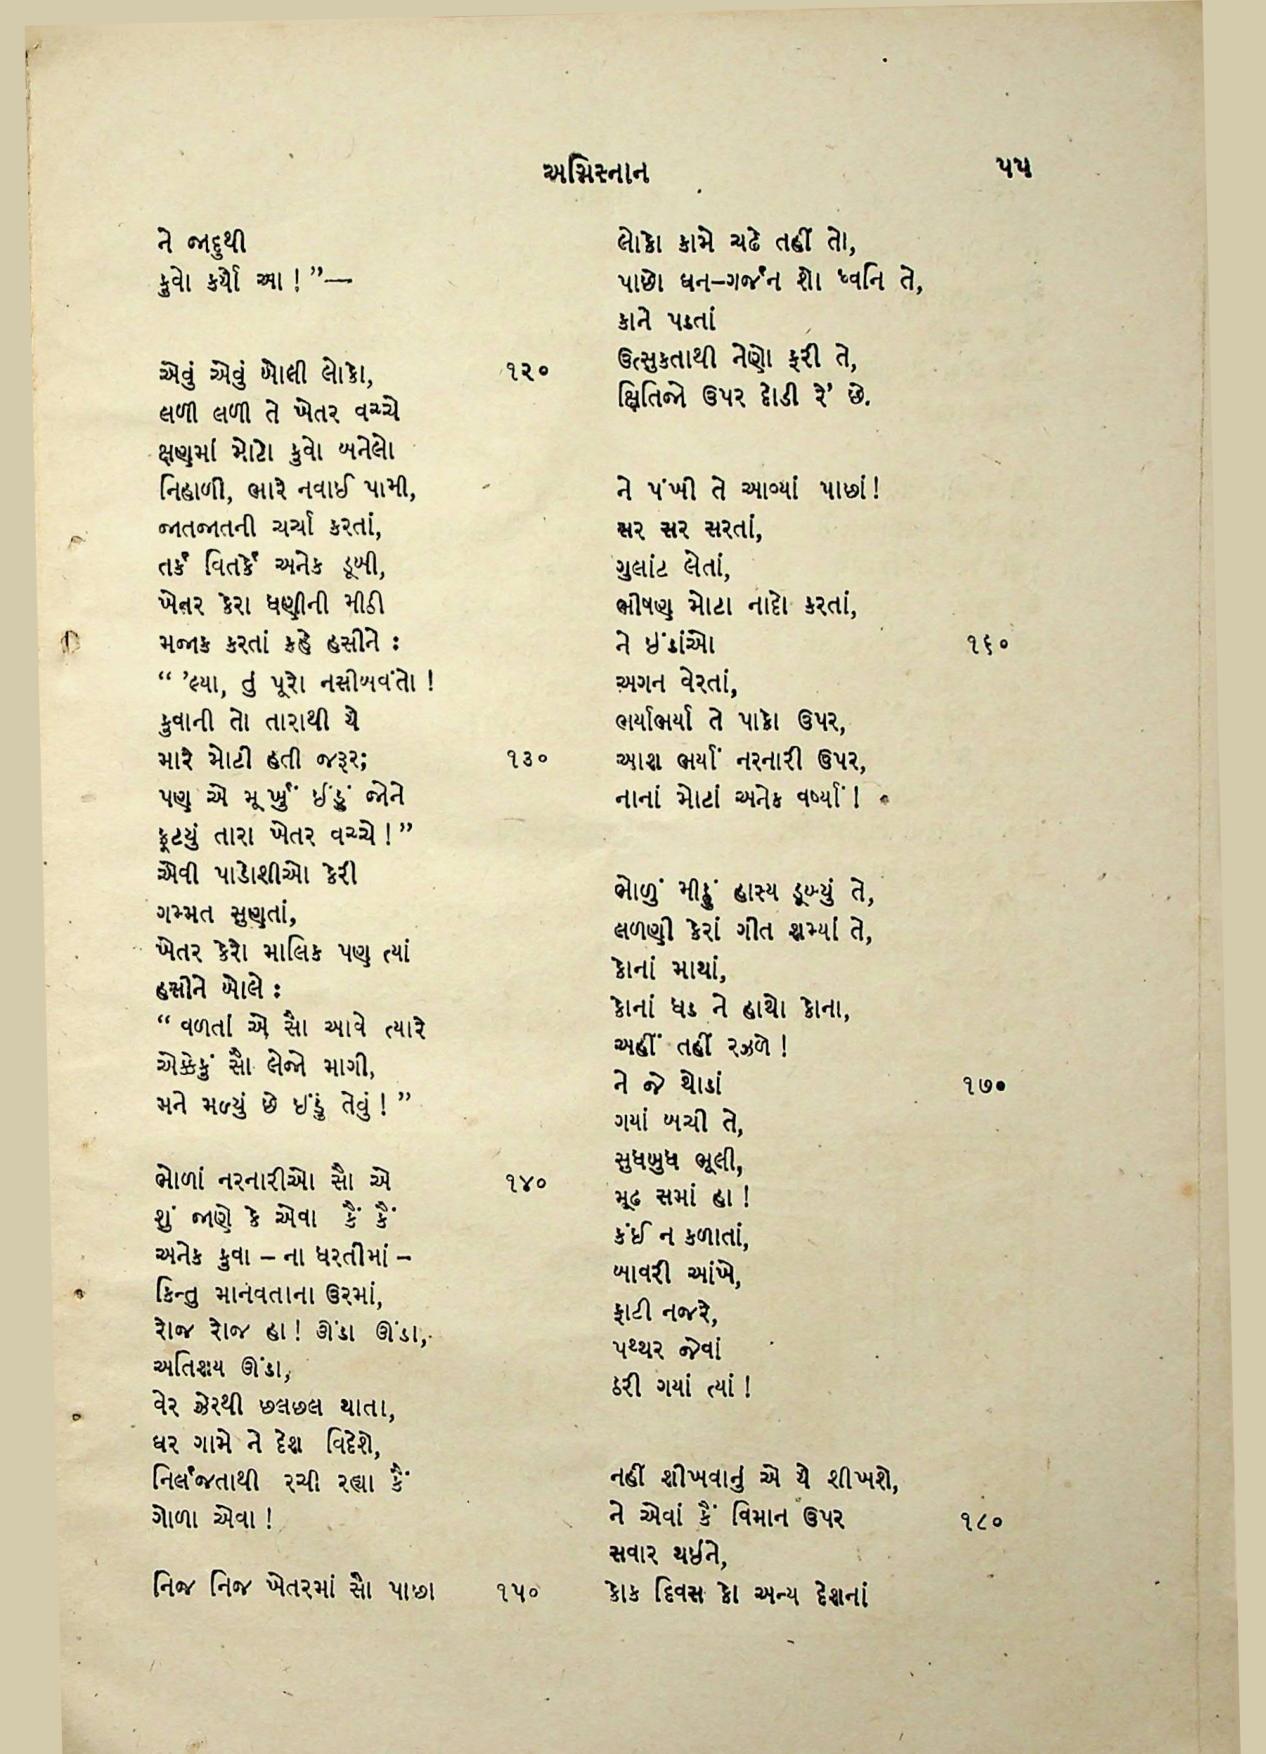 અગ્નિસ્નાન ૫૫
ને જાદુથી
કુવો કર્યો આ ! ”—
એવું એવું બોલી લોકો, ૧૨૦
લળી લળી તે ખેતર વચ્ચે
ક્ષણમાં મોટો કુવો બનેલો
નિહાળી, ભારે નવાઈ પામી,
જાતજાતની ચર્ચા કરતાં,
તર્ક વિતર્કે અનેક ડૂબી,
ખેતર કેરા ધણીની મીઠી
મજાક કરતાં કહે હસીને :
“ ’લ્યા, તું પૂરો નસીબવંતો !
કુવાની તો તારાથી યે
મારે મોટી હતી જરૂર; ૧૩૦
પણ એ મૂર્ખું ઈંડું જોને
ફૂટયું તારા ખેતર વચ્ચે ! ”
એવી પાડોશીઓ કેરી
ગમ્મત સુણતાં,
ખેતર કેરો માલિક પણ ત્યાં
હસીને બોલે :
“ વળતાં એ સૌ આવે ત્યારે
એક્કેકું સૌ લેજો માગી,
મને મળ્યું છે ઈંડું તેવું ! ”
ભોળાં નરનારીઓ સૌ એ ૧૪૦
શું જાણે કે એવા કૈં કૈં
અનેક કુવા – ના ધરતીમાં –
કિન્તુ માનવતાના ઉરમાં,
રોજ રોજ હા ! ઊંડા ઊંડા,
અતિશય ઊંડા,
વેર ઝેરથી છલછલ થાતા,
ઘર ગામે ને દેશ વિદેશે,
નિર્લજતાથી રચી રહ્યા કૈં
ગોળા એવા !
નિજ નિજ ખેતરમાં સૌ પાછા ૧૫૦
લોકો કામે ચઢે તહીં તો,
પાછો ઘન–ગર્જન શો ધ્વનિ તે,
કાને પડતાં
ઉત્સુકતાથી નેણો ફરી તે,
ક્ષિતિજો ઉપર દોડી રે’ છે.
ને પંખી તે આવ્યાં પાછાં !
સર સર સરતાં,
ગુલાંટ લેતાં,
ભીષણ મોટા નાદો કરતાં,
ને ઈંડાંઓ ૧૬૦
અગન વેરતાં,
ભર્યાભર્યા તે પાકો ઉપર,
આશ ભર્યાં નરનારી ઉપર,
નાનાં મોટાં અનેક વર્ષ્યાં !
ભોળું મીઠું હાસ્ય ડૂબ્યું તે,
લળણી કેરાં ગીત શમ્યાં તે,
કોનાં માથાં,
કોનાં ધડ ને હાથો કોના,
અહીં તહીં રઝળે !
ને જે થોડાં ૧૭૦
ગયાં બચી તે,
સુધબુધ ભૂલી,
મૂઢ સમાં હા !
કંઈ ન કળાતાં,
બાવરી આંખે,
ફાટી નજરે,
પથ્થર જેવાં
ઠરી ગયાં ત્યાં !
નહીં શીખવાનું એ યે શીખશે,
ને એવાં કૈં વિમાન ઉપર ૧૮૦
સવાર થઈને,
કોક દિવસ કો અન્ય દેશનાં